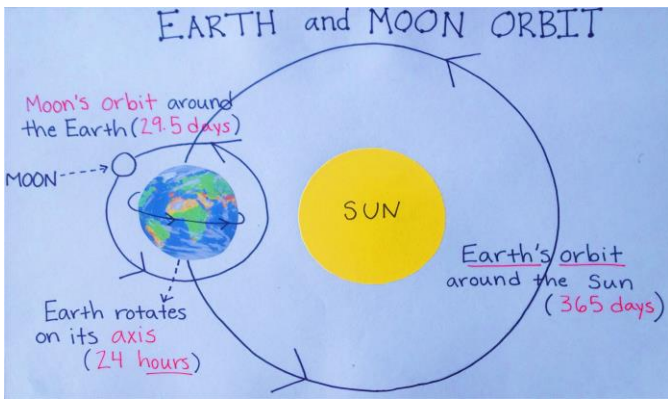 EARTH and MOON ORBIT
Moon's orbit around
the Earth (29.5 days)
MOON
SUN
Earth's orbit
around the Sun
(365 days)
Earth rotates
on its axis
(24 hours)